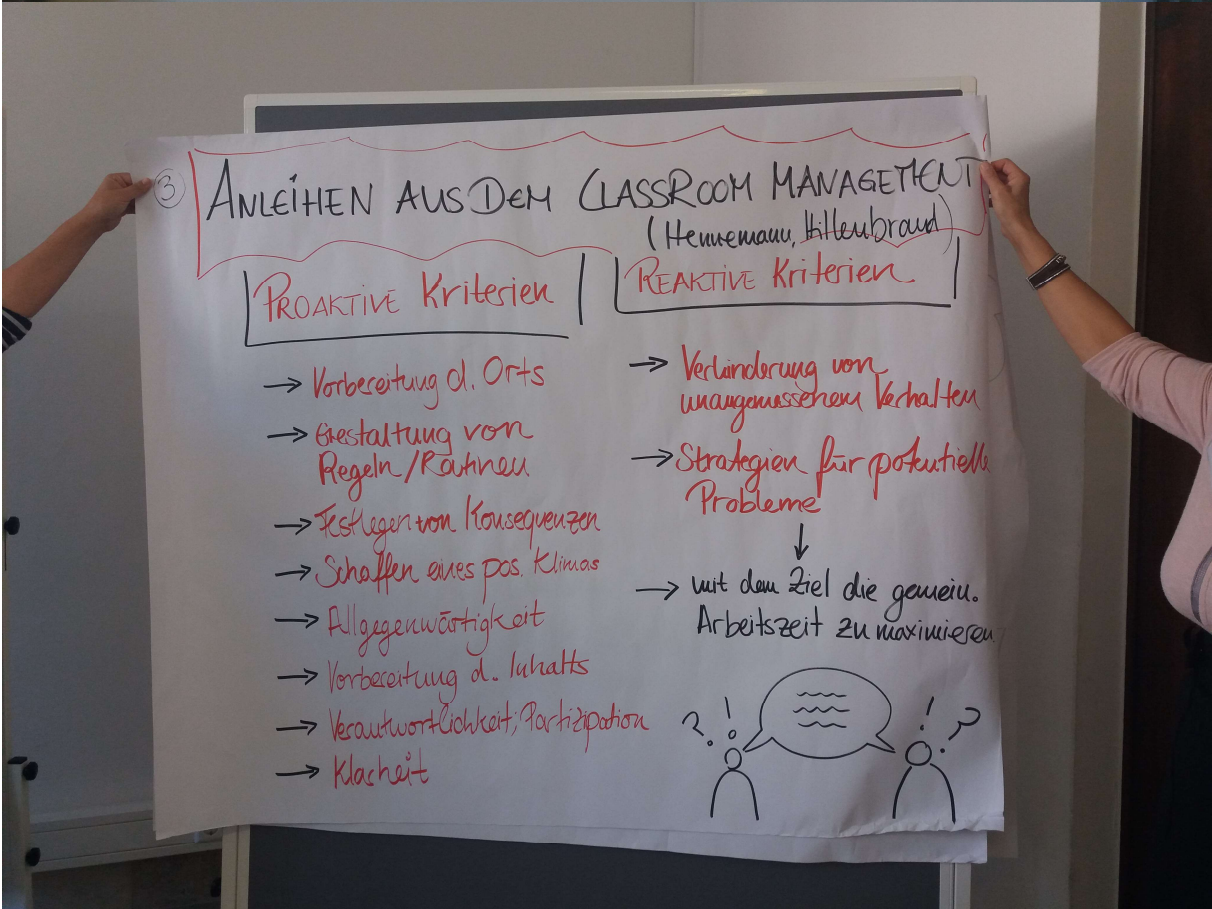 ③
ANLEIHEN AUS DEM CLASSROOM MANAGEMENT
(Hennemann, Hillenbrand)
PROAKTIVE Kriterien
→ Vorbereitung d. Orts
→ Gestaltung von
Regeln/Routinen
→ Festlegen von Konsequenzen
→ Schaffen eines pos. Klimas
→ Allgegenwärtigkeit
→ Vorbereitung d. Inhalts
→ Verantwortlichkeit; Partizipation
→ Klarheit
REAKTIVE Kriterien
→ Verhinderung von
unangemessenem Verhalten
→ Strategien für potentielle
Probleme
↓
→ mit dem Ziel die gemein.
Arbeitszeit zu maximieren
? ! ! ?